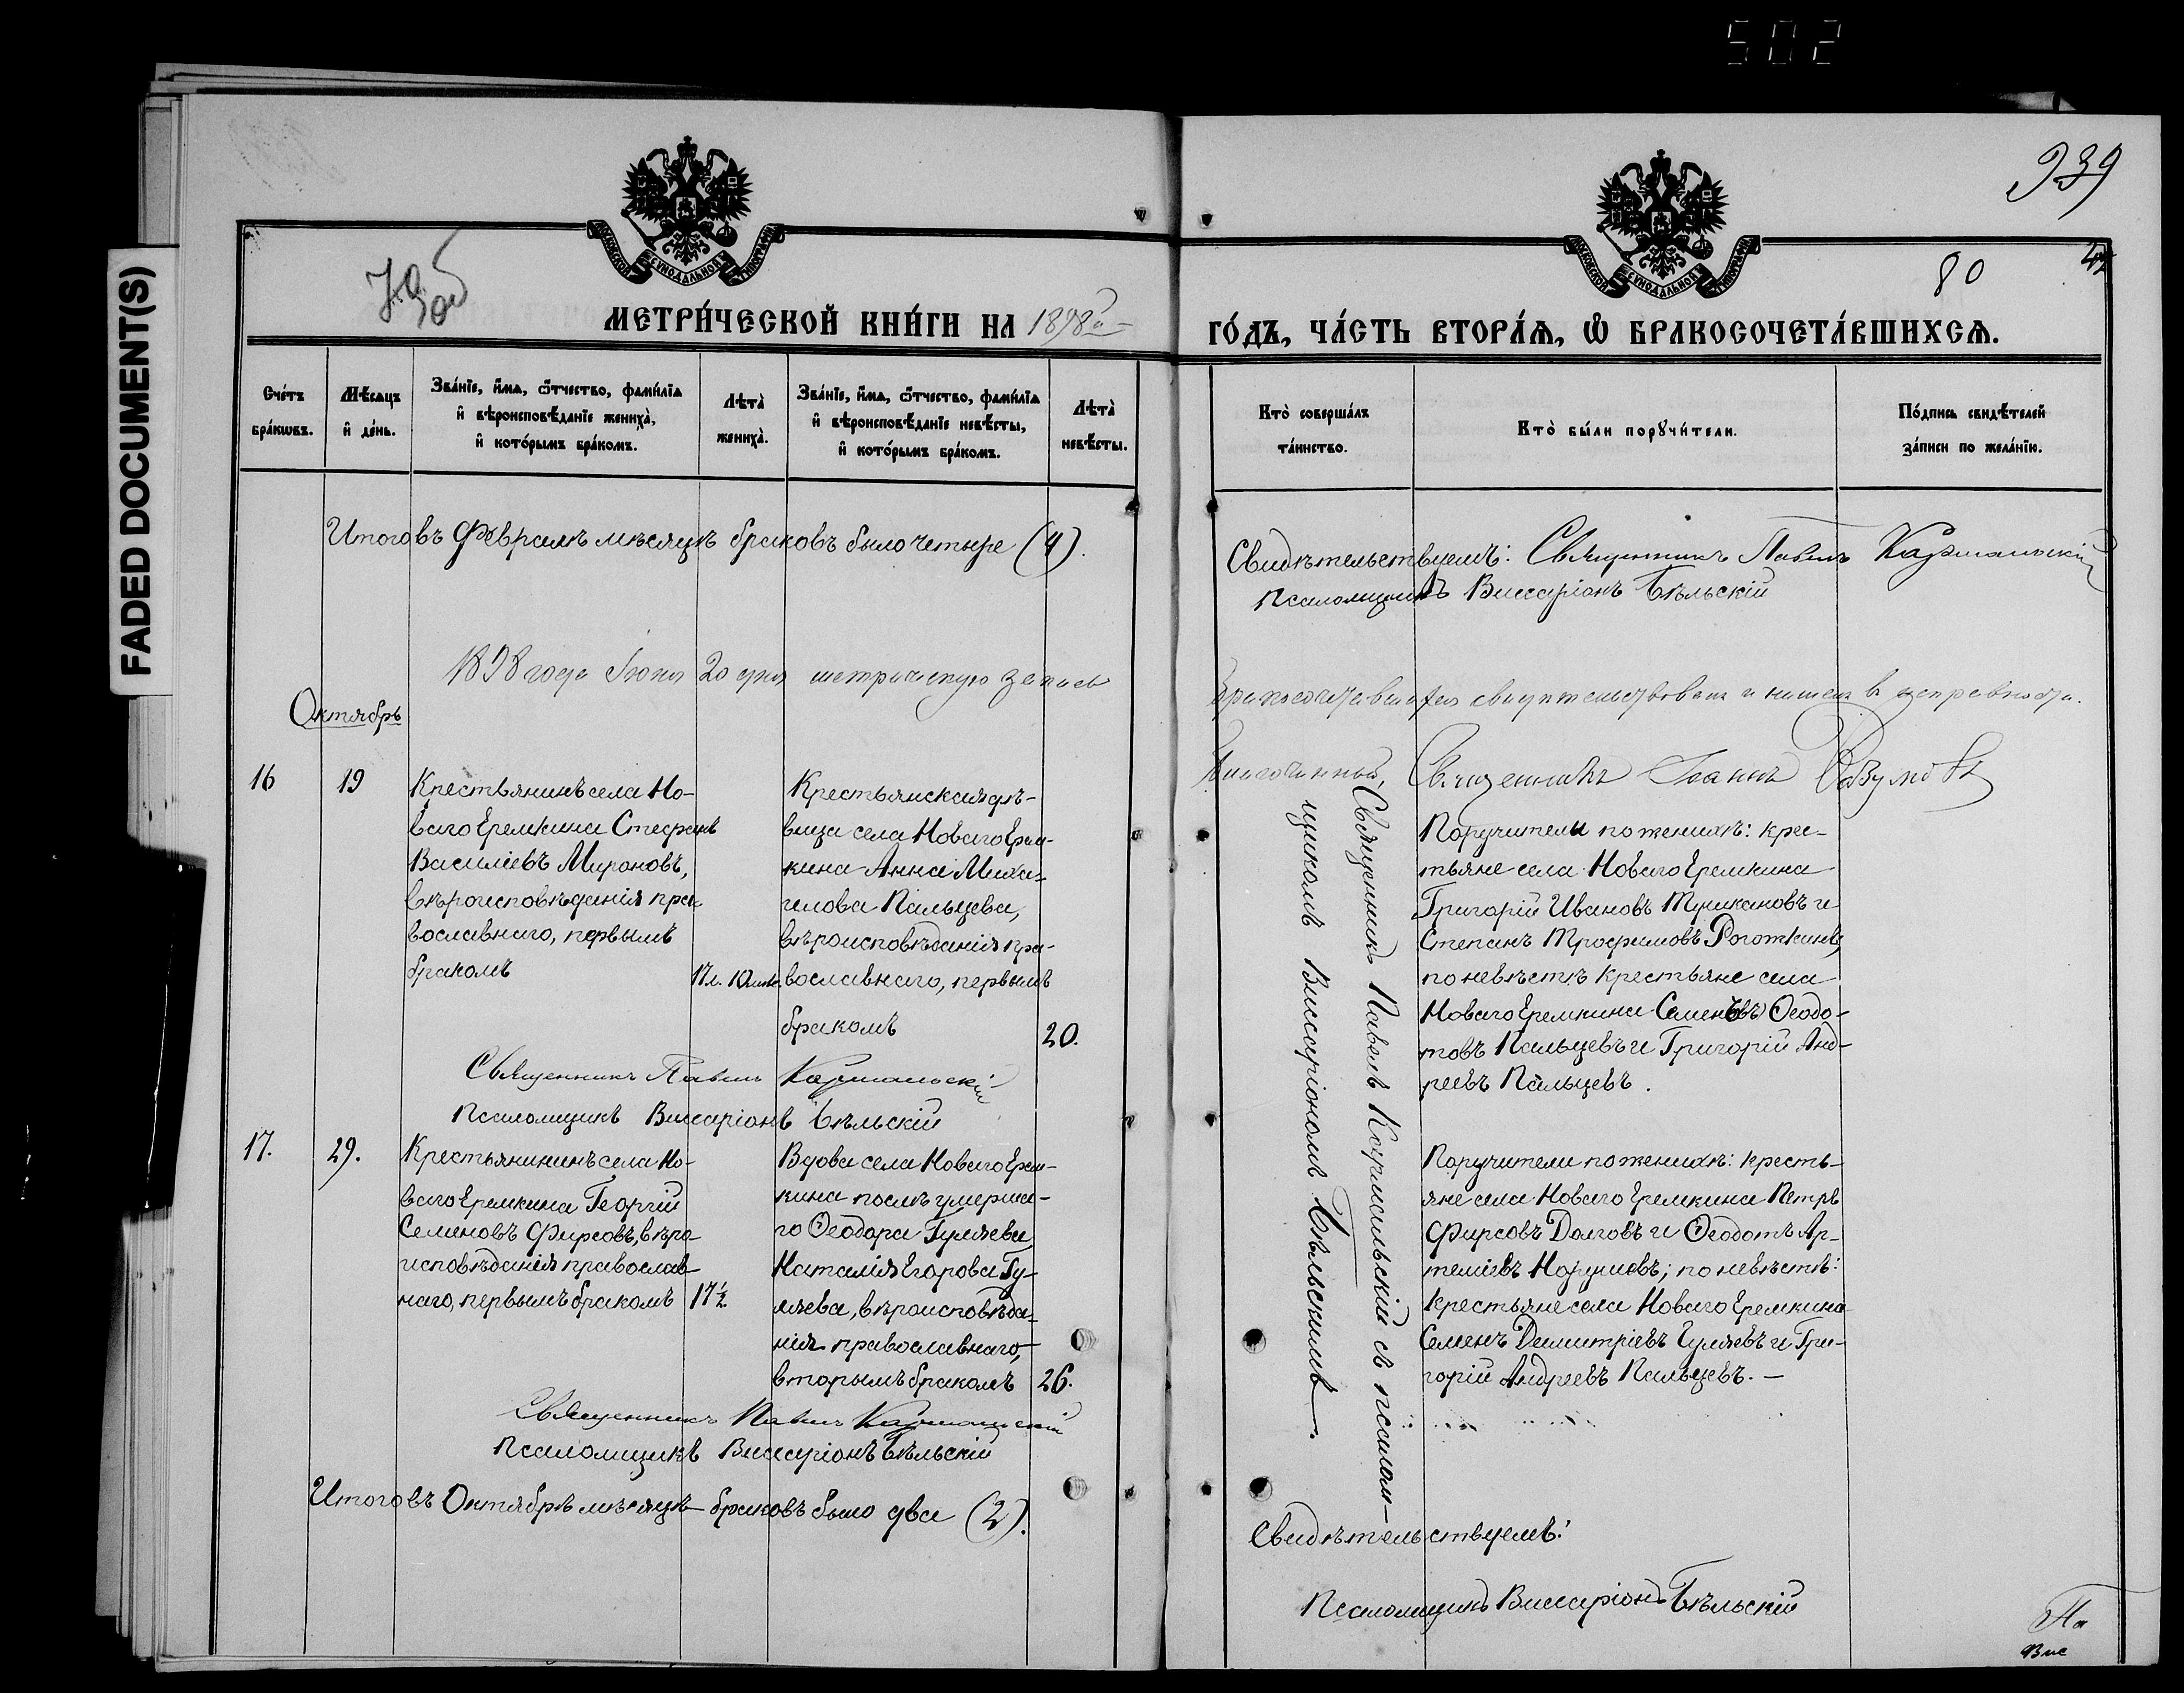 502
FADED DOCUMENT(S)
939
80
42
МОСКОВСКОЙ СѴНОДАЛЬНОЙ ТИПОГРАФІИ
МОСКОВСКОЙ СѴНОДАЛЬНОЙ ТИПОГРАФІИ
МЕТРИ́ЧЕСКОЙ КНИ́ГИ НА 1898й
ГО́ДЪ, ЧА́СТЬ ВТОРА́Ѧ, Ѽ БРАКОСОЧЕТА́ВШИХСѦ.
Сче́тъ бра́кѡвъ.
Мѣ́сѧцъ и҆ де́нь.
Зва́нїе, и҆́мѧ, ѻ҆́тчество, фами́лїѧ и҆ вѣроисповѣ́данїе жениха̀, и҆ кото́рымъ бра́комъ.
Лѣта̀ жениха̀.
Зва́нїе, и҆́мѧ, ѻ҆́тчество, фами́лїѧ и҆ вѣроисповѣ́данїе невѣ́сты, и҆ кото́рымъ бра́комъ.
Лѣта̀ невѣ́сты.
Кто̀ соверша́лъ та́инство.
Кто̀ бы́ли порꙋчи́тели.
По́дпись свидѣ́телей за́писи по жела́нїю.
Итого въ Февралѣ мѣсяцѣ браковъ было четыре (4).
Свидѣтельствуемъ: Священникъ Павелъ Кармальскій
Псаломщикъ Виссаріонъ Бѣльскій
1898 года Іюня 20 дня метрическую запись
бракосочетавшихся свидѣтельствовалъ и нашелъ въ исправности.
Благочинный, Священникъ Іоаннъ
Октябрь
16
19
Крестьянинъ села Но-
ваго Еремкина Стефанъ
Василіевъ Мироновъ,
вѣроисповѣданія пра-
вославнаго, первымъ
бракомъ
17 л. 10 мѣс.
Крестьянская дѣ-
вица села Новаго Ерем-
кина Анна Миха-
илова Пальцева,
вѣроисповѣданія пра-
вославнаго, первымъ
бракомъ
20.
Священникъ Павелъ Кармальскій съ псалом-
щикомъ Виссаріономъ Бѣльскимъ.
Поручители по женихѣ: крес-
тьяне села Новаго Еремкина
Григорій Ивановъ Тушкановъ и
Степанъ Трофимовъ Роготкинъ,
по невѣстѣ крестьяне села
Новаго Еремкина Семенъ Ѳеодо-
товъ Пальцевъ и Григорій Анд-
реевъ Пальцевъ.
Священникъ Павелъ Кармальскій
Псаломщикъ Виссаріонъ Бѣльскій
17.
29.
Крестьянинъ села Но-
ваго Еремкина Георгій
Семеновъ Фирсовъ, вѣро-
исповѣданія православ-
наго, первымъ бракомъ
17½
Вдова села Новаго Ерем-
кина послѣ умерша-
го Ѳеодора Гуляева
Наталія Егорова Гу-
ляева, вѣроисповѣда-
нія православнаго,
вторымъ бракомъ
26.
Поручители по женихѣ: кресть-
яне села Новаго Еремкина Петръ
Фирсовъ Долговъ и Ѳеодотъ Ар-
теміевъ; по невѣстѣ:
крестьяне села Новаго Еремкина
Семенъ Димитріевъ Гуляевъ и Гри-
горій Андреевъ Пальцевъ. —
Священникъ Павелъ Кармальскій
Псаломщикъ Виссаріонъ Бѣльскій
Итого въ Октябрѣ мѣсяцѣ браковъ было два (2).
Свидѣтельствуемъ:
Псаломщикъ Виссаріонъ Бѣльскій
Па
Вис